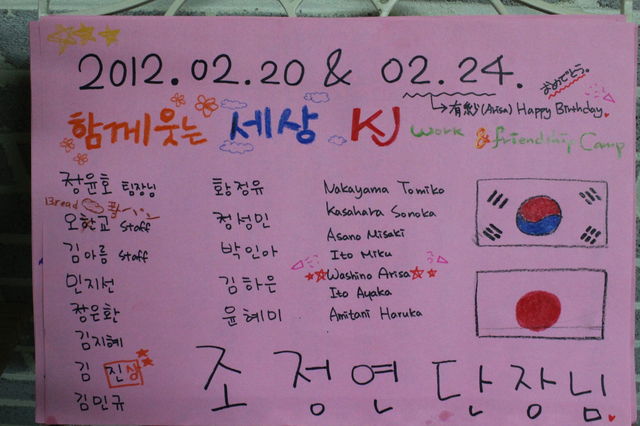 2012.02.20 & 02.24.
おめでとう。
→有紗(Arisa) Happy Birthday
함께웃는 세상 KJ work & friendship Camp
정윤호 팀장님
Bread
오한교 staff
김아름 staff
민지선
장은환
김지혜
김 진상
김민규
황정유
정성민
박인아
김하은
윤혜미
Nakayama Tomiko
Kasahara Sonoka
Asano Misaki
Ito Miku
Washino Arisa
Ito Ayaka
Amitani Haruka
조정연단장님